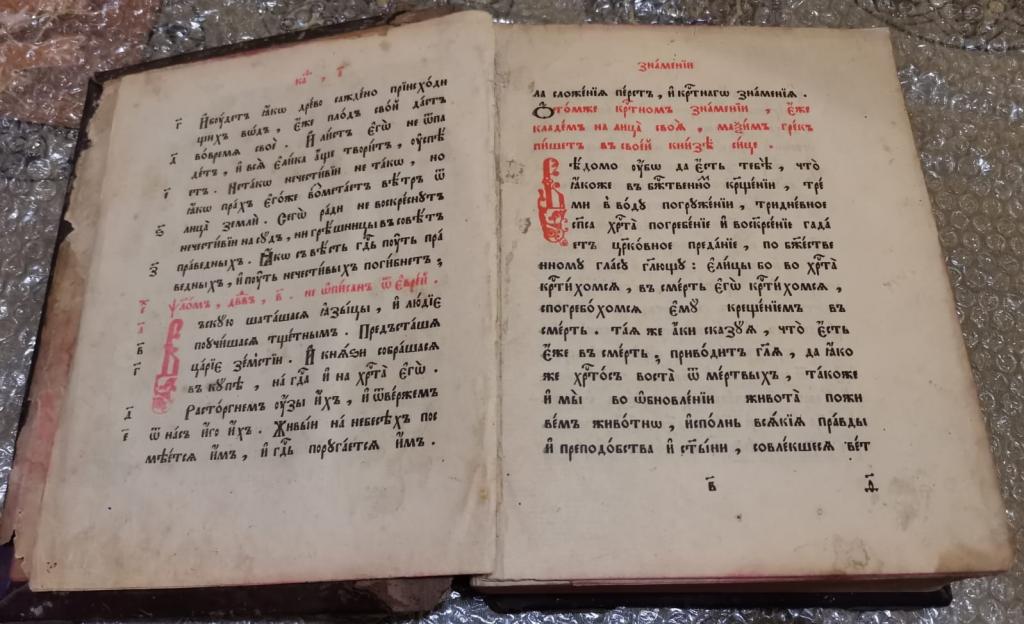 каⷴ, г҃
г҃ И҆бꙋдетъ ꙗ҆́кѡ дре́во сажде́но приисходи́
щихъ во́дъ, є҆́же пло́дъ сво́й да́стъ
д҃ во́время своѐ. И҆ ли́стъ є҆гѡ̀ не ѿпа
де́тъ, и҆ всѧ̀ є҆ли́ка а҆́ще твори́тъ, ᲂу҆спѣ́
є҃ етъ. Нета́кѡ нечести́вїи не та́кѡ, но
ꙗ҆́кѡ пра́хъ є҆го́же возмета́етъ вѣ́тръ ѿ
ѕ҃ лица̀ землѝ. Сегѡ̀ ра́ди не воскре́снꙋтъ
нечести́вїи на сꙋ́дъ, ни грѣ́шницы въ совѣ́тъ
з҃ пра́ведныхъ. Ꙗ҆́кѡ съвѣ́сть гдⷭ҇ь пꙋ́ть пра́
ведныхъ, и҆ пꙋ́ть нечести́выхъ поги́бнетъ;
ѱало́мъ, дв҃дъ, в҃. не ѡ҆пи́санъ ѿ є҆вре́й.
а҃ Въскꙋ́ю шата́шасѧ ꙗ҆зы́цы, и҆ лю́дїе
в҃ поꙋчи́шасѧ тще́тнымъ. Предъста́шѧ
г҃ ца́рїе зе́мстїи. И҆ кнѧ̑зи собра́шасѧ
въ кꙋ́пѣ, на гдⷭ҇а и҆ на хрⷭ҇та̀ є҆гѡ̀.
Расто́ргнемъ ᲂу҆́зы и҆́хъ, и҆ ѿве́ржемъ
д҃ ѿ на́съ и҆́го и҆́хъ. Живы́и на небесѣ́хъ пос
є҃ мѣе́тсѧ и҆̀мъ, и҆ гдⷭ҇ь порꙋга́етсѧ и҆̀мъ.
зна́менїи
ла сложе́нїѧ пе́рстъ, и҆ крⷭ҇тнагѡ зна́менїѧ.
Ѻ҆то́мже крⷭ҇тномъ зна́менїи, є҆́же
кладе́мъ на лица̀ своѧ̀, ма́ѯимъ гре́къ
пи́шетъ въ свое́й кни́зѣ си́це.
Вѣ́домо ᲂу҆́бѡ да є҆́сть тебѣ̀, что̀
ꙗ҆́коже въ бж҃твенно́ крⷭ҇ще́нїи, тре
мѝ в во́дꙋ погрꙋже́нїи, тридне́вное
сп҃са хрⷭ҇та̀ погребе́нїе и҆ воскрⷭ҇нїе гада́
етъ цр҃ко́вное преда́нїе, по бж҃е́стве
нному гла́сꙋ гл҃ющꙋ: є҆ли́цы бо во хрⷭ҇та̀
крⷭ҇ти́хомсѧ, въ сме́рть є҆гѡ̀ крⷭ҇ти́хомсѧ,
спогребо́хомсѧ є҆мꙋ̀ креще́нїемъ въ
сме́рть. та́ѧ же а҆́ки сказꙋ́ѧ, что̀ є҆́сть
є҆́же въ сме́рть; приво́дитъ гл҃ѧ, да ꙗ҆́ко
же хрⷭ҇то́съ воста̀ ѿ ме́ртвыхъ, та́коже
и҆ мы̀ во ѡ҆бновле́нїи живота̀ пожи
ве́мъ живо́тнѡ, и҆спо́лнь всѧ́кїѧ пра́вды
и҆ преподо́бства и҆ ст҃ы́ни, совле́кшесѧ ве́т
в҃ д҃